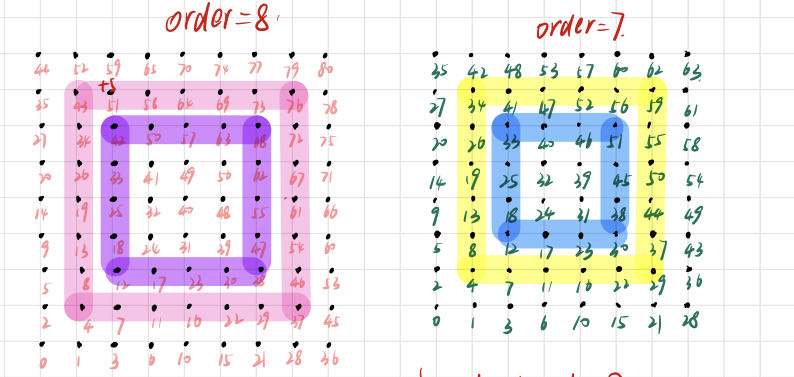 order=8
44 52 59 65 70 74 77 79 80
+5
35 43 51 58 64 69 73 76 78
27 34 42 50 57 63 68 72 75
20 26 33 41 49 56 62 67 71
14 19 25 32 40 48 55 61 66
9 13 18 24 31 39 47 54 60
5 8 12 17 23 30 38 46 53
2 4 7 11 16 22 29 37 45
0 1 3 6 10 15 21 28 36
order=7
35 42 48 53 57 60 62 63
27 34 41 47 52 56 59 61
20 26 33 40 46 51 55 58
14 19 25 32 39 45 50 54
9 13 18 24 31 38 44 49
5 8 12 17 23 30 37 43
2 4 7 11 16 22 29 36
0 1 3 6 10 15 21 28